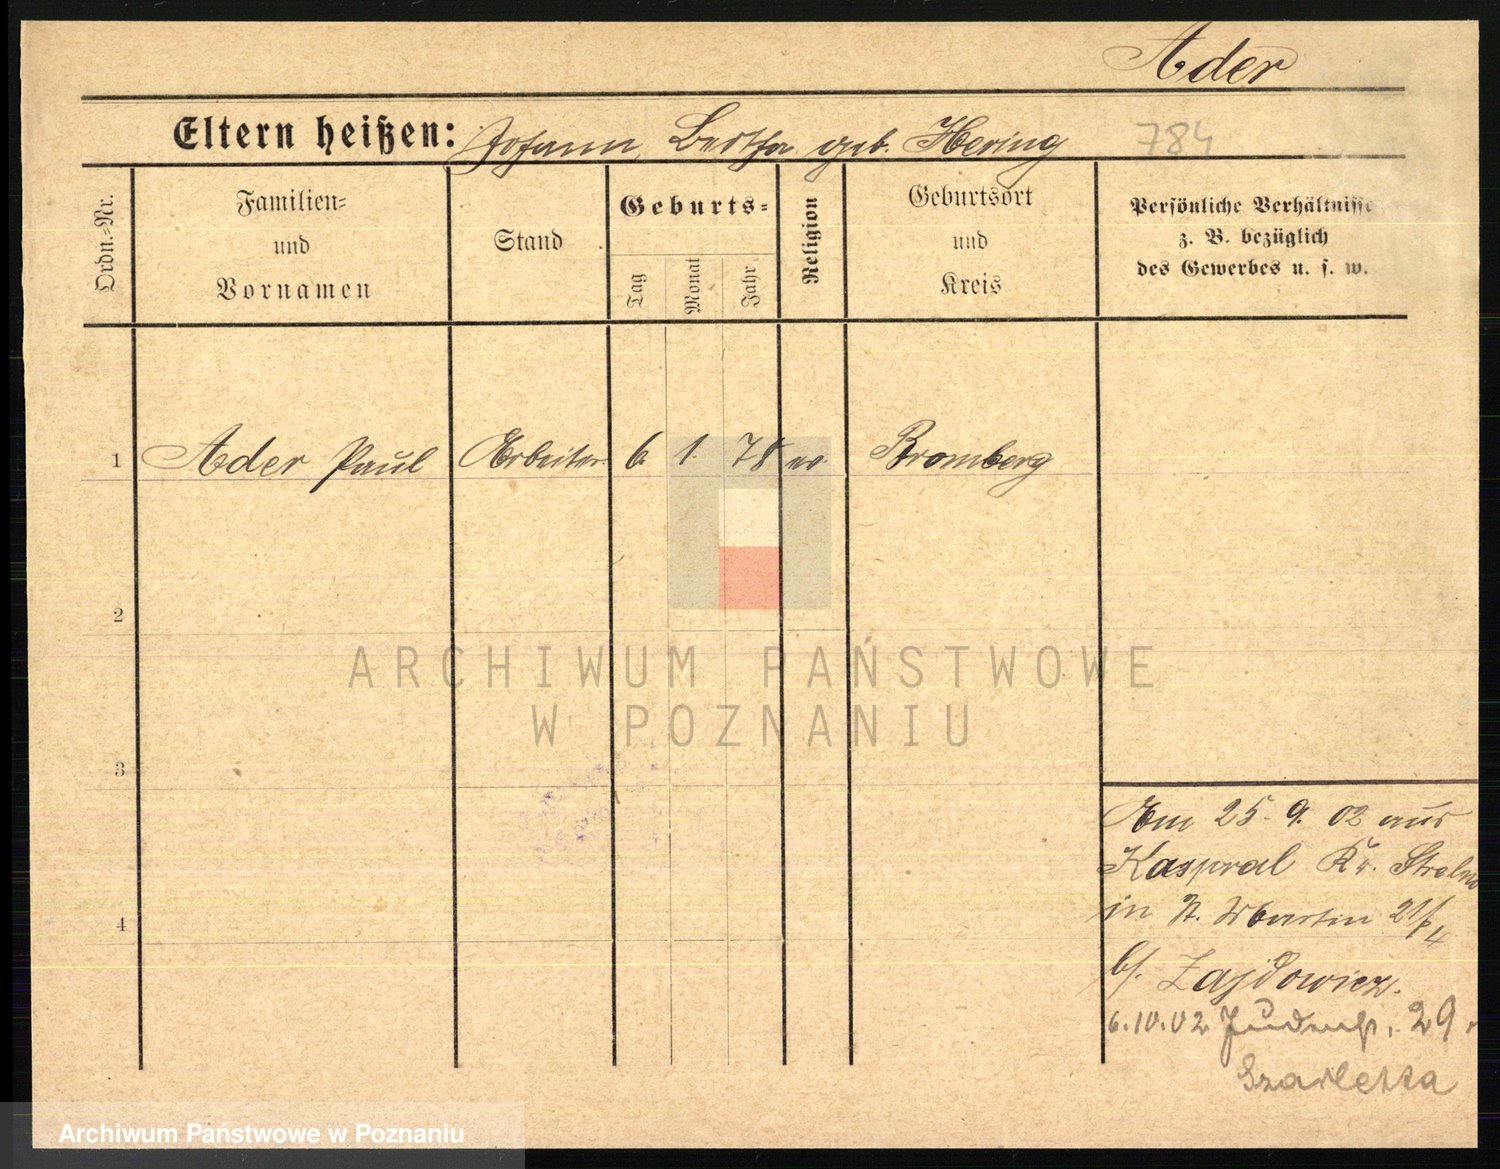 Ader
Eltern heißen: Johann, Bertha geb. Hering 784
Ordn.-Nr.
Familien-
und
Vornamen
Stand
Geburts-
Tag Monat Jahr
Religion
Geburtsort
und
Kreis
Persönliche Verhältnisse
z. B. bezüglich
des Gewerbes u. s. w.
1 Ader Paul Arbeiter 6. 1. 78 ev Bromberg
2
ARCHIWUM PAŃSTWOWE
W POZNANIU
3
4
Am 25. 9. 02 aus
Kaspral Kr. Strelno
in St. Martin 21/
b/. Zajdowicz.
6.10.02 Judenstr. 29
Archiwum Państwowe w Poznaniu